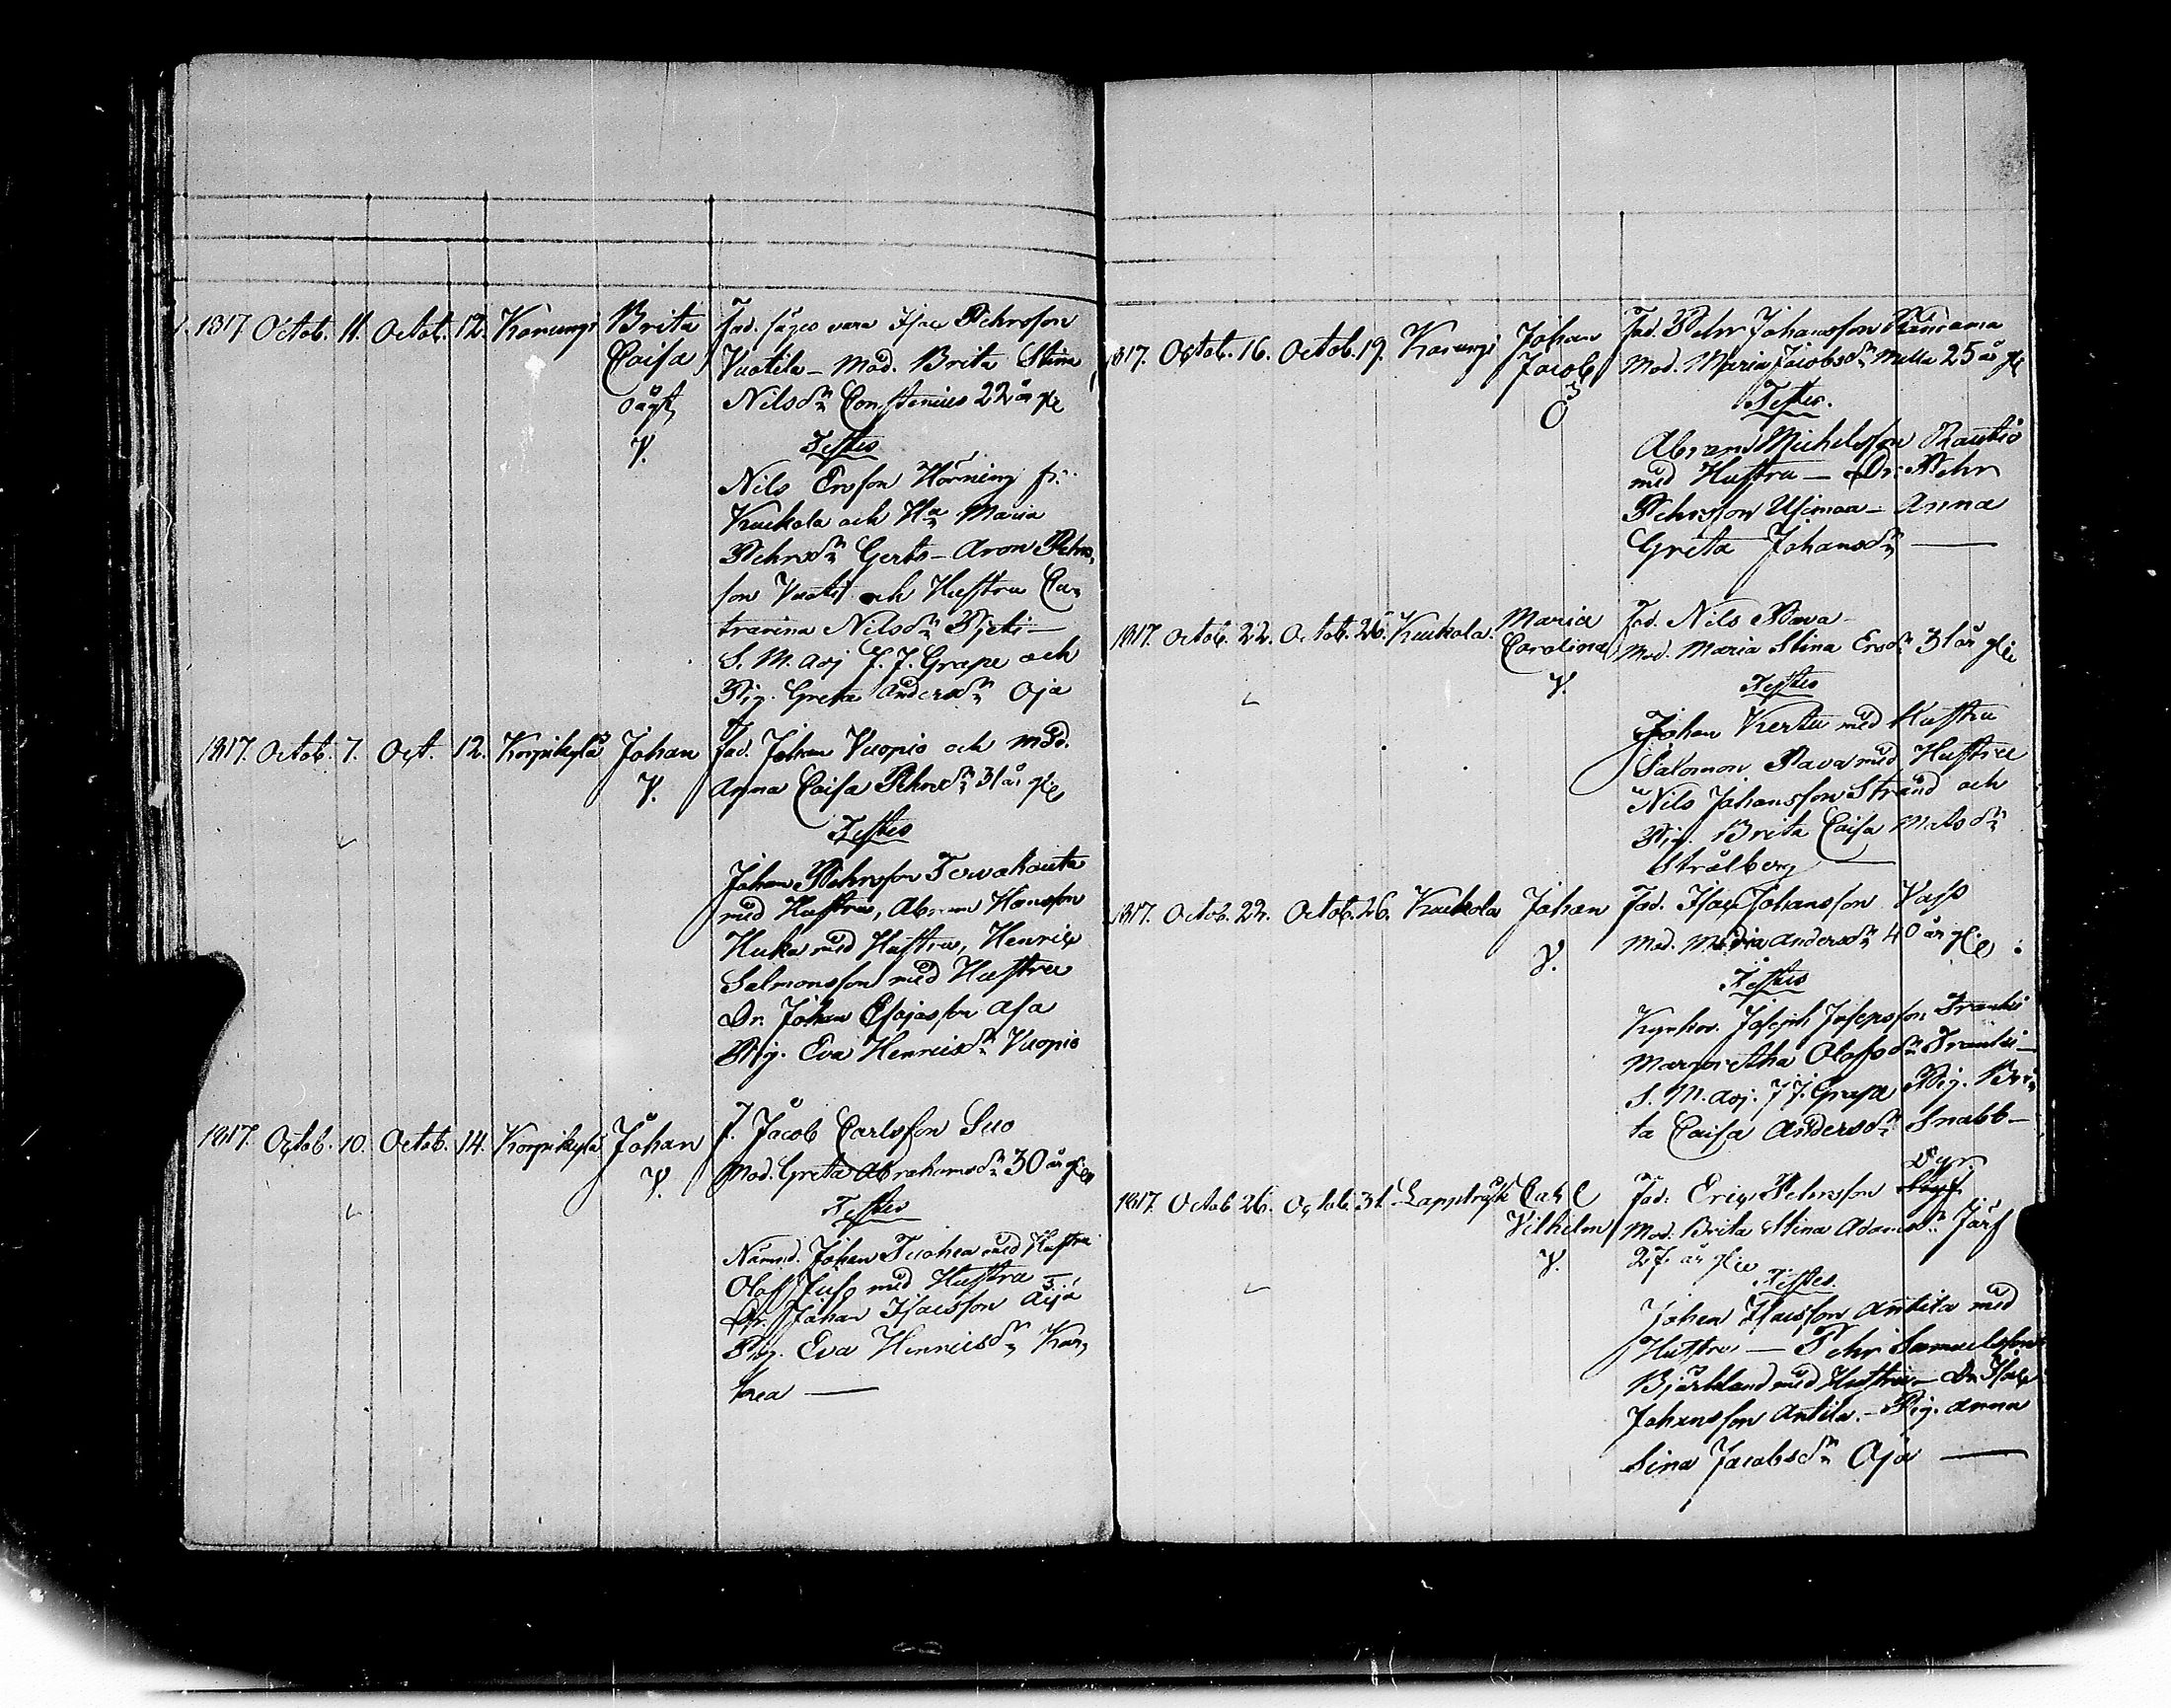 1817 Octob. 11. Octob. 12. Karungi Brita Fad. säges vara Isac Pehrsson
Caisa Vuotila – Mod. Brita Stina
oägt, Nilsdr Constenius 22 år gl
V. Testes
Nils Ersson Hörning fr.
Kuckola och Hu Maria
Pehrsdr Gerts – Aron Pehrs,
son Vuoti och Hustru Ca,
trarina Nilsdr Pjeti –
S. M. adj J. J. Grape och
Pig. Greta Andersdr Oja
1817. Octob. 7. Oct. 12. Korpikylä Johan Fad. Johan Vuopio och mod.
V. Anna Caisa Pehrsdr 31 år gl
Testes
Johan Pehrsson Tervahauta
med Hustru, Abram Hansson
Huka med Hustru, Henric
Salmonsson med Hustru
Dr. Johan Esajasson Asa
Pig. Eva Henricsdr Vuopio
1817. Octob. 10. Octob. 14. Korpikylä Johan F. Jacob Carlsson Suo
V. Mod. Greta Abrahamsdr 30 år gl
Testes
Nämnd. Johan Tuohea med Hustru
Olof Juso med Hustru –
Dr. Johan Isacsson
Pig. Eva Henricsdr Kar,
hea —
1817. Octob. 16. Octob. 19. Karungi Johan Fad. Pehr Johansson
Jacob Mod. Maria Jacobsdr Mella 25 år gl
Testes.
Abram Michelsson Rautio
med Hustru – Dr. Pehr
Pehrsson Usimaa – Anna
Greta Johansdr —
1817. Octob. 22. Octob. 26. Kuckola. Maria Fad. Nils Pava –
Carolina Mod. Maria Stina Ersdr 31 år gl
V. Testes
Johan Kerttu med Hustru
Salomon Pava med Hustru
Nils Johansson Strand och
Pig. Brita Caisa Matsdr
Strålberg —
1817. Octob. 22. Octob. 26. Kuckola Johan Fad. Isac Johansson Vass
V. Mod. Maria Andersdr 40 år gl
Testes
Kyrkov. Joseph Josepsson Franki
Margaretha Olofsdr Franki –
S. M. adj. J J. Grape Pig. Bri,
ta Caisa Andersdr Snabb –
Dyr.
1817. Octob 26. Octob. 31. Lappträsk Carl Fad. Eric Pehrsson
Vilhelm Mod. Brita Stina Adamsdr Järf
V. 27 år gl
Testes.
Johan Isacsson Antila med
Hustru — Pehr Samuelsson
Björklund med Hustru – Dr. Isac
Johansson Antila. – Pig. Anna
Sina Jacobsdr Oja —